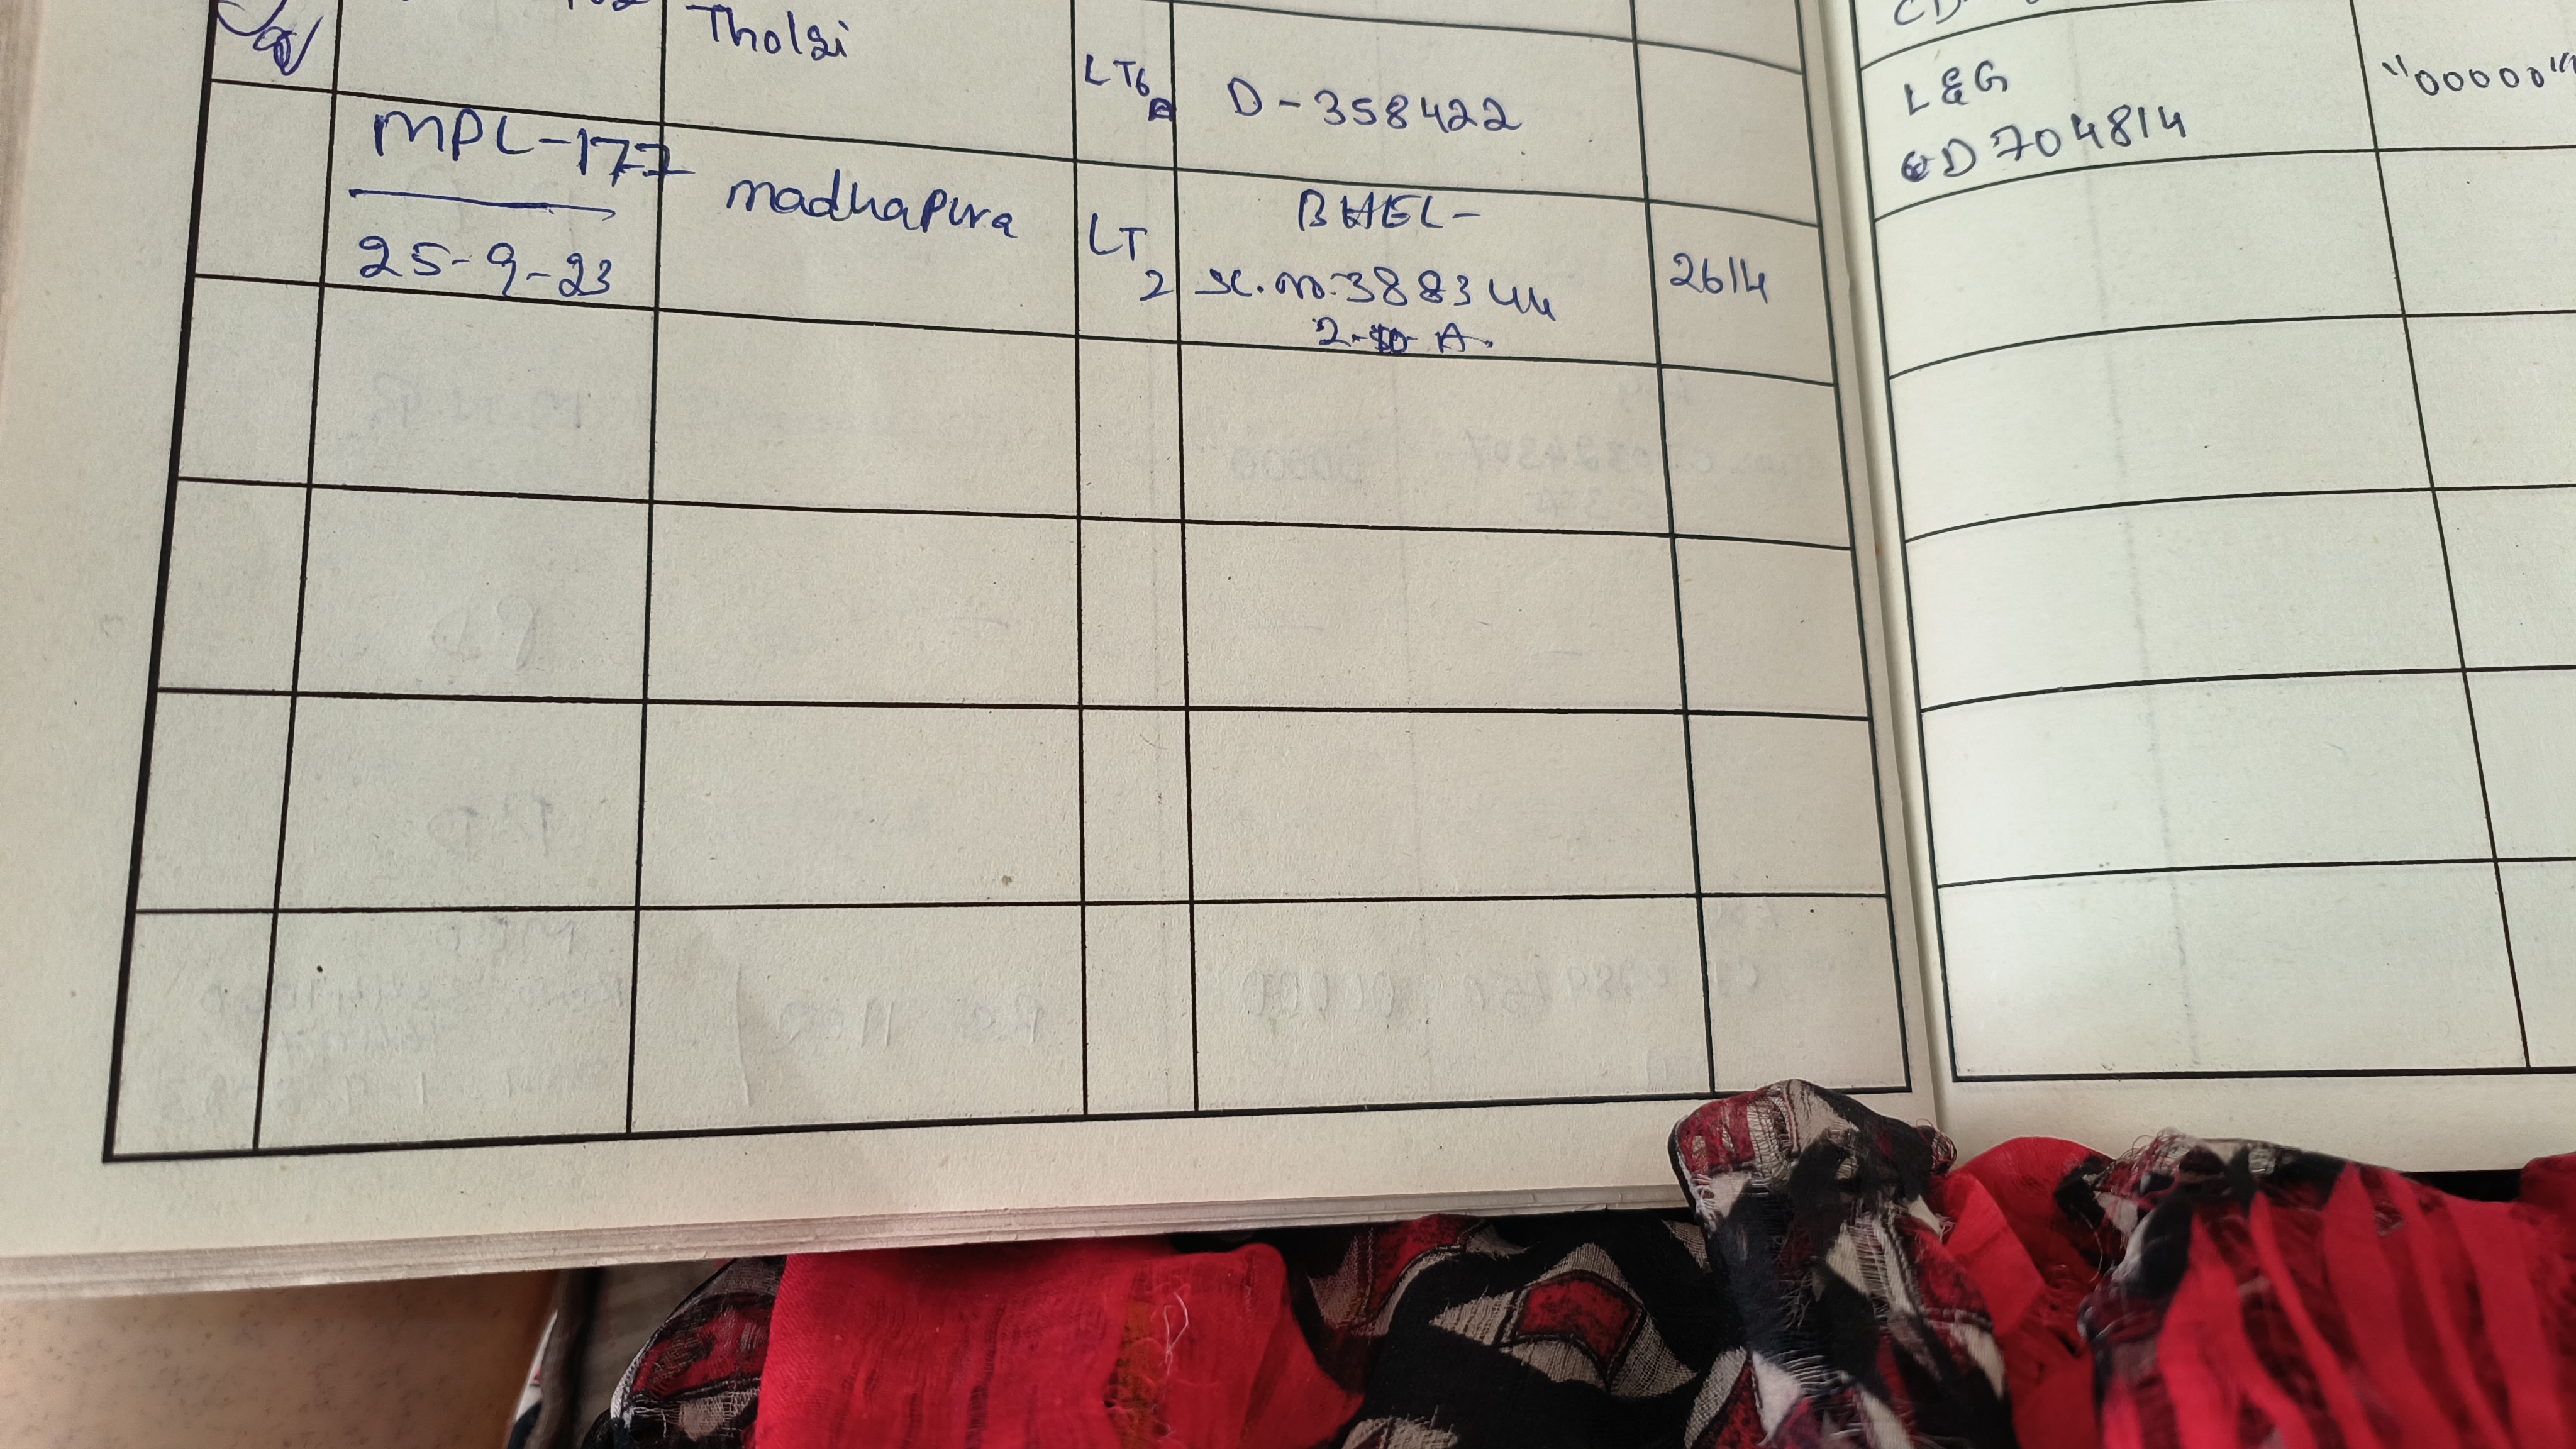 Tholsi
LT6
D-358422
L&G
D704814
"00000"
MPL-177
25-9-23
madhapura
LT
2
BHEL-
Sl.no:388344
2-10 A.
2614